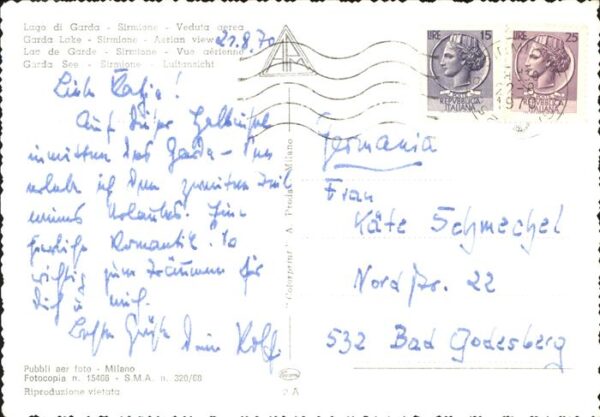 Lago di Garda - Sirmione - Veduta aerea
Garda Lake - Sirmione - Aerian view
Lac de Garde - Sirmione - Vue aérienne
Garda See - Sirmione - Luftansicht
21.8.70
LIRE 15
REPUBBLICA ITALIANA
LIRE 25
REPUBBLICA ITALIANA
22-8
1970
Liebe Katja!
Auf dieser Halbinsel
inmitten des Garda-Sees
erlebe ich den zweiten Teil
meines Urlaubs. Eine
herrliche Romantik. So
richtig zum Träumen für
Dich u. mich.
Beste Grüße Dein Rolf
Germania
Frau
Käte Schmechel
Nordstr. 22
532 Bad Godesberg
"Colorprint" A. Preda - Milano
Pubbli aer foto - Milano
Fotocopia n. 15466 - S.M.A. n. 320/68
Riproduzione vietata
2 A